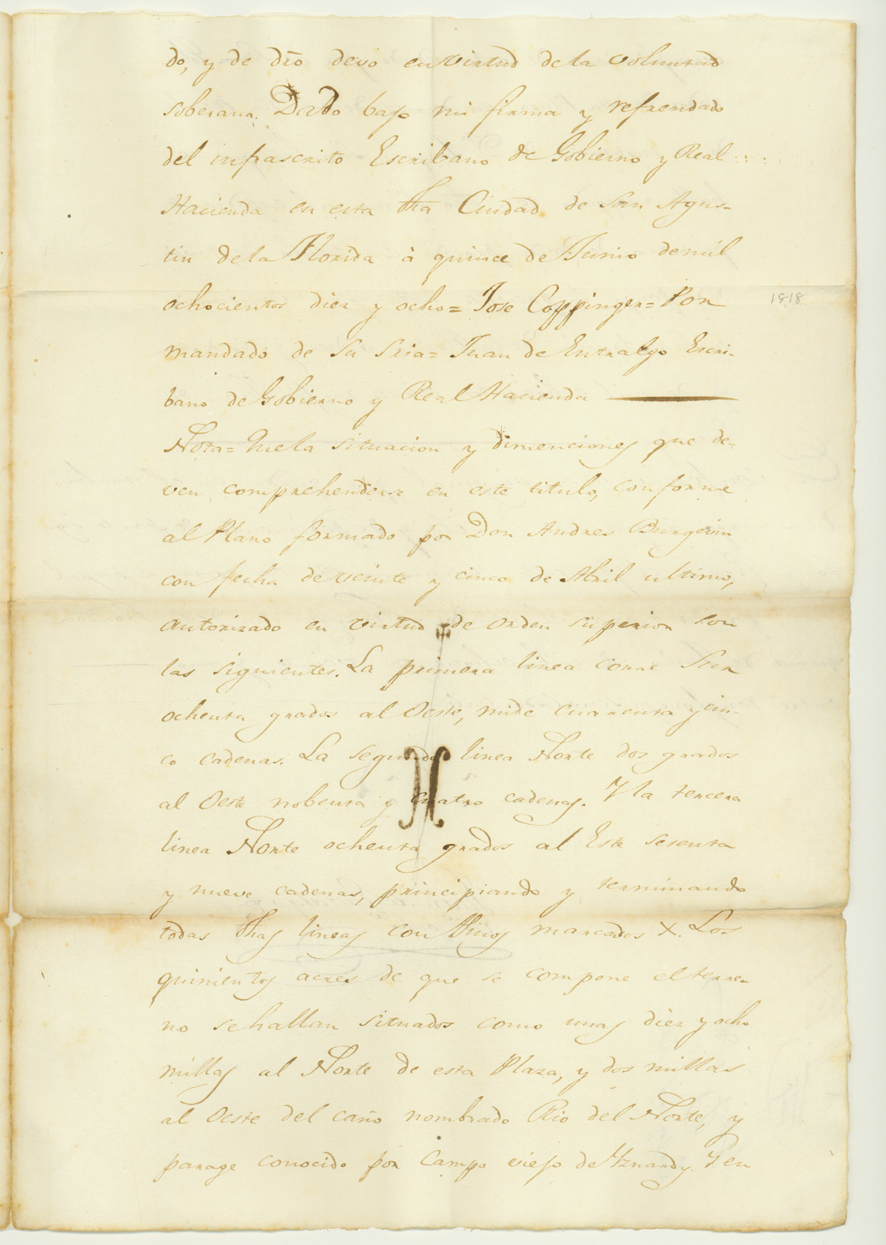 do, y de dro devo en virtud de la voluntad
soberana. Dado bajo mi firma y refrendado
del infrascrito Escribano de Gobierno y Real
Hacienda en esta dha Ciudad de San Agus-
tin de la Florida à quince de Junio de mil
ochocientos diez y ocho = Jose Coppinger = Por
1818
mandado de su Sria = Juan de Entralgo Escri-
bano de Gobierno y Real Hacienda
Nota = Que la situacion y dimenciones que de-
ven comprehenderse en este titulo, conforme
al Plano formado por Don Andres Burgevin
con fecha de veinte y cinco de Abril ultimo,
autorizado en virtud de orden superior son
las siguientes. La primera linea corre Sur
ochenta grados al Oeste, mide cuarenta y cin-
co cadenas. La segunda linea Norte dos grados
al Oeste nobenta y cuatro cadenas. Y la tercera
linea Norte ochenta grados al Este sesenta
y nueve cadenas, principiando y terminando
todas dhas lineas con Pinos marcados X. Los
quinientos acres de que se compone el terre-
no se hallan situados como unas diez y ocho
millas al Norte de esta Plaza, y dos millas
al Oeste del caño nombrado Rio del Norte, y
parage conocido por Campo viejo de Yznardy. Y en